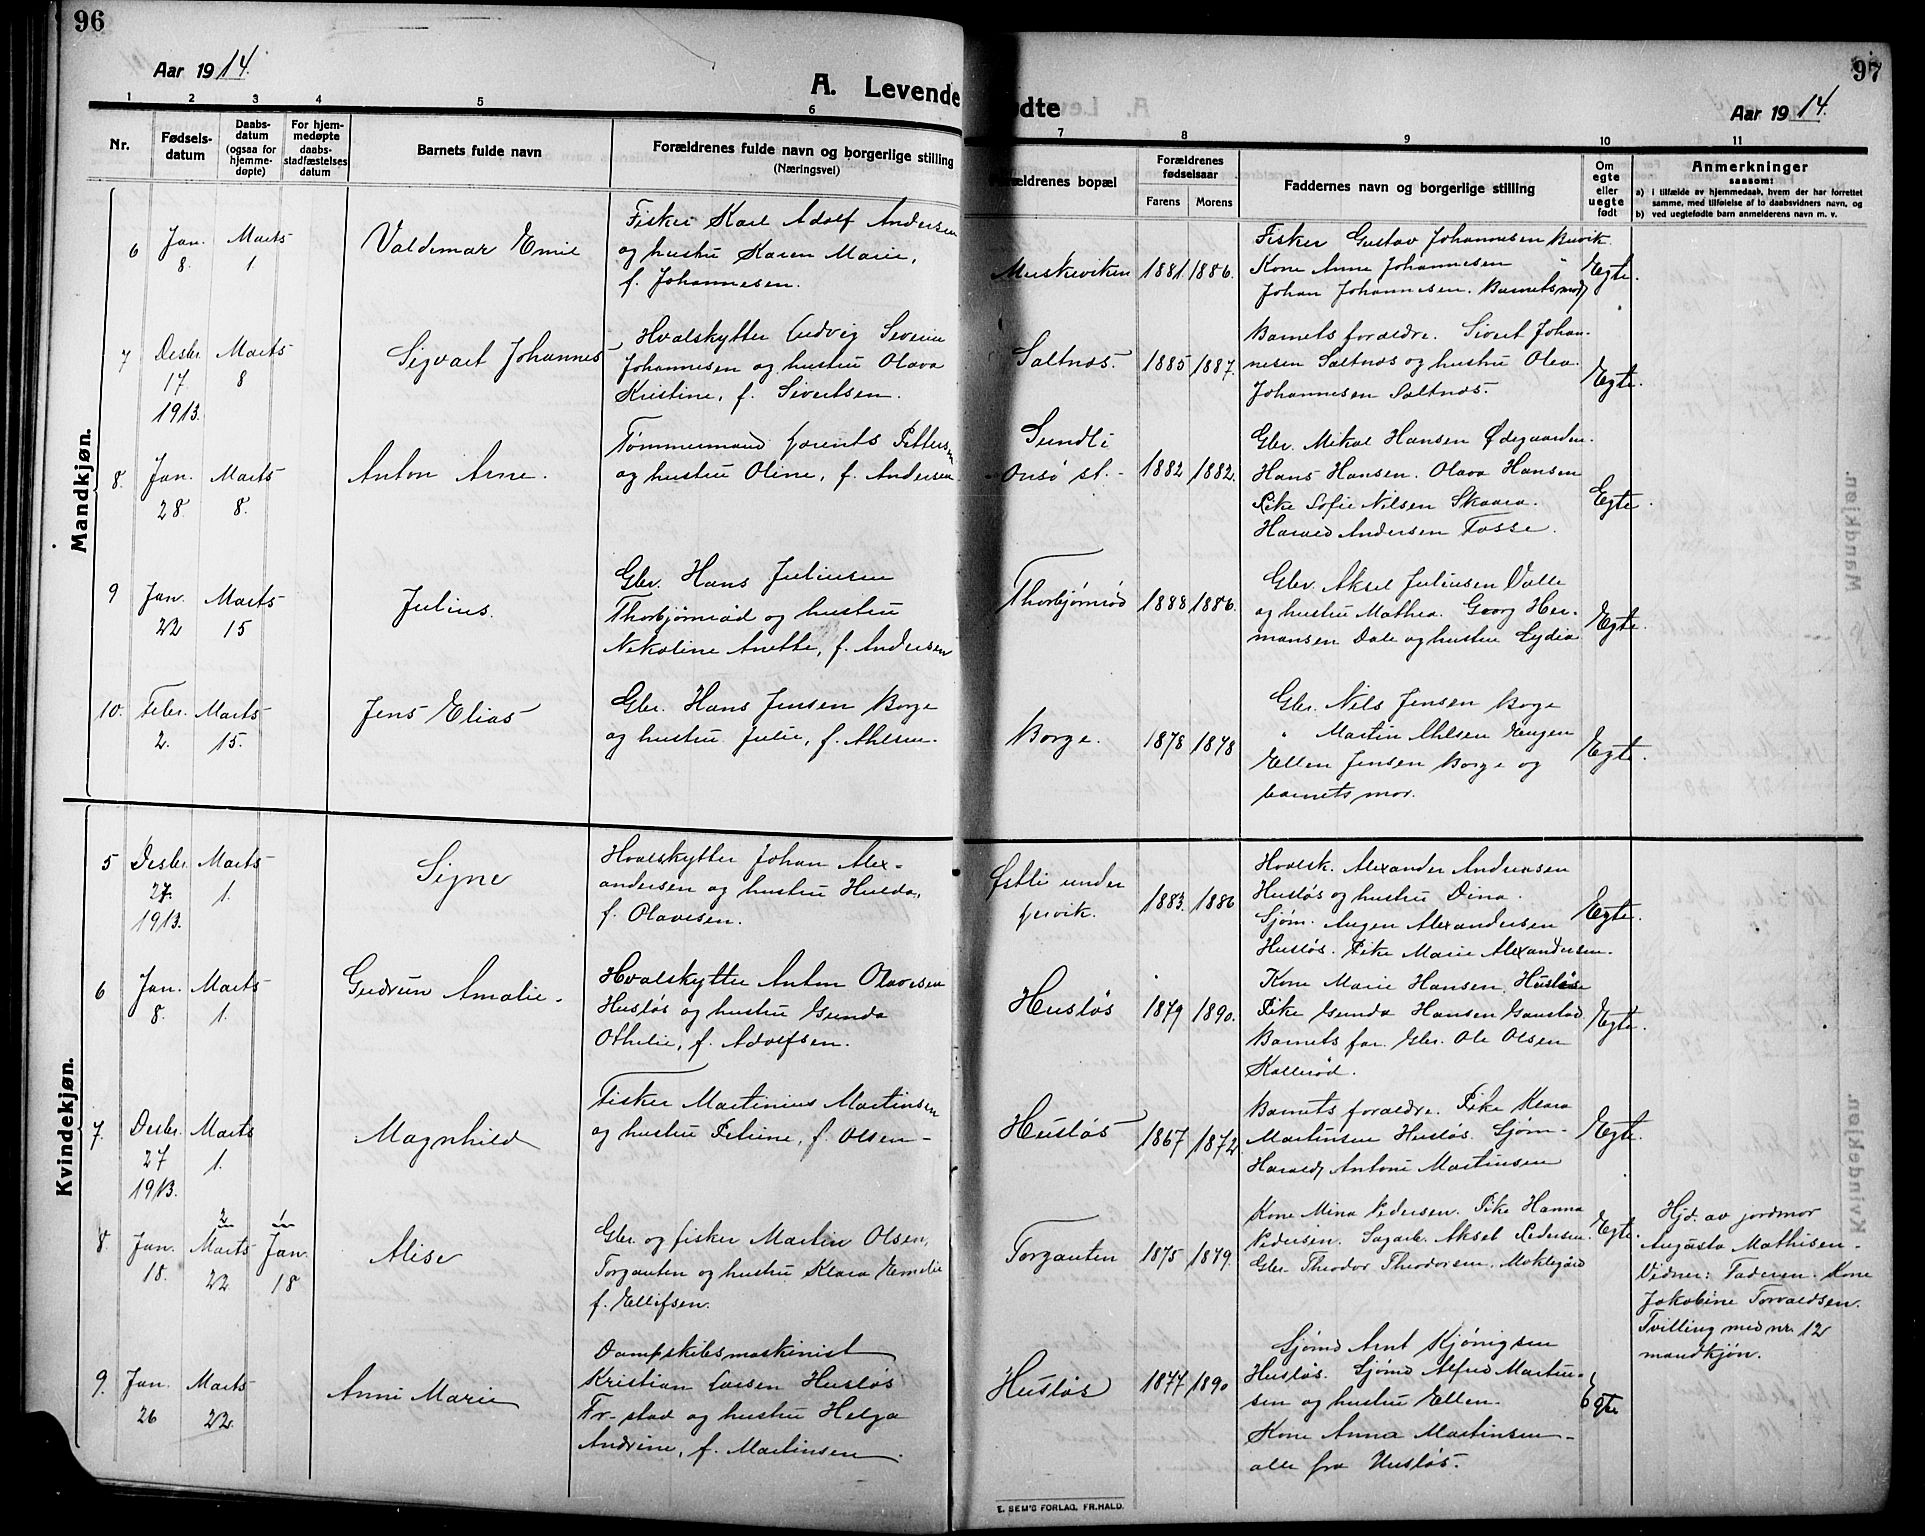 96
Aar 1914.
A. Levende
1 2 3 4 5 6
Nr.
Fødsels-
datum
Daabs-
datum
(ogsaa for
hjemme-
døpte)
For hjem-
medøpte
daabs-
stadfæstelses
datum
Barnets fulde navn
Forældrenes fulde navn og borgerlige stilling
(Næringsvei)
Mandkjøn.
6 Jan. 8. Marts 1. Valdemar Emil
Fisker Karl Adolf Andersen
og hustru Karen Marie,
f. Johannesen.
7 Desbr. 17. 1913. Marts 8 Sigvart Johannes
Hvalskytter Ludvig Severin
Johannesen og hustru Olava
Kristine, f. Sivertsen.
8. Jan. 28. Marts 8. Anton Arne.
Tømmermand Laurits Pettersen
og hustru Oline, f. Andersen
9 Jan. 22 Marts 15 Julius.
Gbr. Hans Juliusen
Thorbjørnrød og hustru
Nikoline Anette, f. Andersen
10. Febr. 2. Marts 15. Jens Elias
Gbr. Hans Jensen Borge
og hustru Julie, f. Ahlsen.
Kvindekjøn.
5 Desbr. 27. 1913. Marts 1. Signe
Hvalskytter Johan Alex-
andersen og hustru Hulda,
f. Olavesen.
6 Jan. 8. Marts 1. Gudrun Amalie.
Hvalskytter Anton Olavesen
Husløs og hustru Gunda
Othelie, f. Adolfsen.
7. Desbr. 27 1913. Marts 1. Magnhild
Fisker Martinius Martinsen
og hustru Petrine, f. Olsen
8. Jan. 18. Marts 22 Jan. 18 Alise
Gbr. og fisker Martin Olsen,
Torgauten og hustru Klara Emelie
f. Ellifsen.
9. Jan. 26 Marts 22. Anni Marie
Dampskibsmaskinist
Kristian Larsen Husløs
Fr-stad og hustru Helga
Andrine, f. Martinsen.
97
ødte
Aar 1914.
7 8 9 10 11
Forældrenes bopæl
Forældrenes
fødselsaar
Farens Morens
Faddernes navn og borgerlige stilling
Om
egte
eller
uegte
født
Anmerkninger
saasom:
a) i tilfælde av hjemmedaab, hvem der har forrettet
samme, med tilføielse af to daabsvidners navn, og
b) ved uegtefødte barn anmelderens navn m. v.
Muskeviken 1881. 1886.
Fisker Gustav Johannesen Buvik.
Kone Anne Johannesen "
Johan Johannesen. Barnets mor
Egte.
Saltnos. 1885 1887.
Barnets forældre. Sivert Johan-
nesen Saltnos og hustru Olea
Johannesen Saltnos.
Egte.
Sundli
Onsø st. 1882 1882.
Gbr. Mikal Hansen Ødegaarden.
Hans Hansen. Olava Hansen
Pike Sofie Nilsen Skaara.
Harald Andersen Fosse.
Egte.
Thorbjørnrød 1888 1886.
Gbr. Aksel Juliusen Valle
og hustru Mathea. Georg Her-
mansen Dale og hustru Lydia
Egte.
Borge. 1878 1878
Gbr. Nils Jensen Borge
" Martin Ahlsen Engen
Ellen Jensen Borge og
barnets mor.
Egte.
Østli under
Lervik. 1883. 1886
Hvalsk. Alexander Andreasen
Husløs og hustru Dina.
Sjøm. Augen Alexandersen
Husløs. Pike Marie Alexandersen.
Egte.
Husløs 1879 1890.
Kone Marie Hansen, Husløs
Pike Gunda Hansen Gaustad
Barnets far. Gbr. Ole Olsen
Kallerød.
Egte.
Husløs 1867 1872
Barnets forældre. Pike Klara
Martinsen Husløs. Sjøm-
Harald Antoni Martinsen
Egte.
Torgauten 1875 1879.
Kone Mina Pedersen. Pike Hanna
Pedersen. Sagarb. Aksel Pedersen.
Gbr. Theodor Theodorsen, Moklegård
Egte.
Hjd. av jordmor
Augusta Mathisen.
Vidner: Faderen. Kone
Jakobine Torvaldsen.
Tvilling med nr. 12
mandkjøn.
Husløs 1877 1890
Sjømd Arnt Kjønigsen
Husløs. Sjømd Alfred Martin-
sen og hustru Ellen.
Kone Anna Martinsen
alle fra Husløs.
Egte
E. SEM'S FORLAG, FR.HALD.